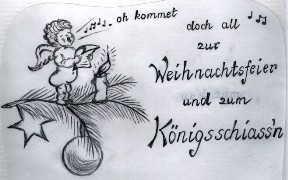 oh kommet
doch all
zur
Weihnachtsfeier
und zum
Königsschiass'n